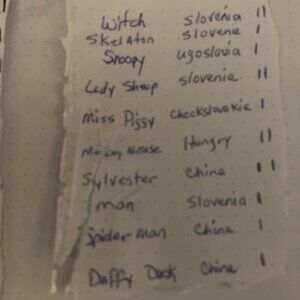 Witch Slovenia II
Skelaton Slovenia I
Snoopy Ugoslavia I
Lady Sheep Slovenia II
Miss Piggy Checkslovakia I
Mickey Mouse Hungry II
Sylvester China II
Man Slovenia I
Spider Man China I
Daffy Duck China I